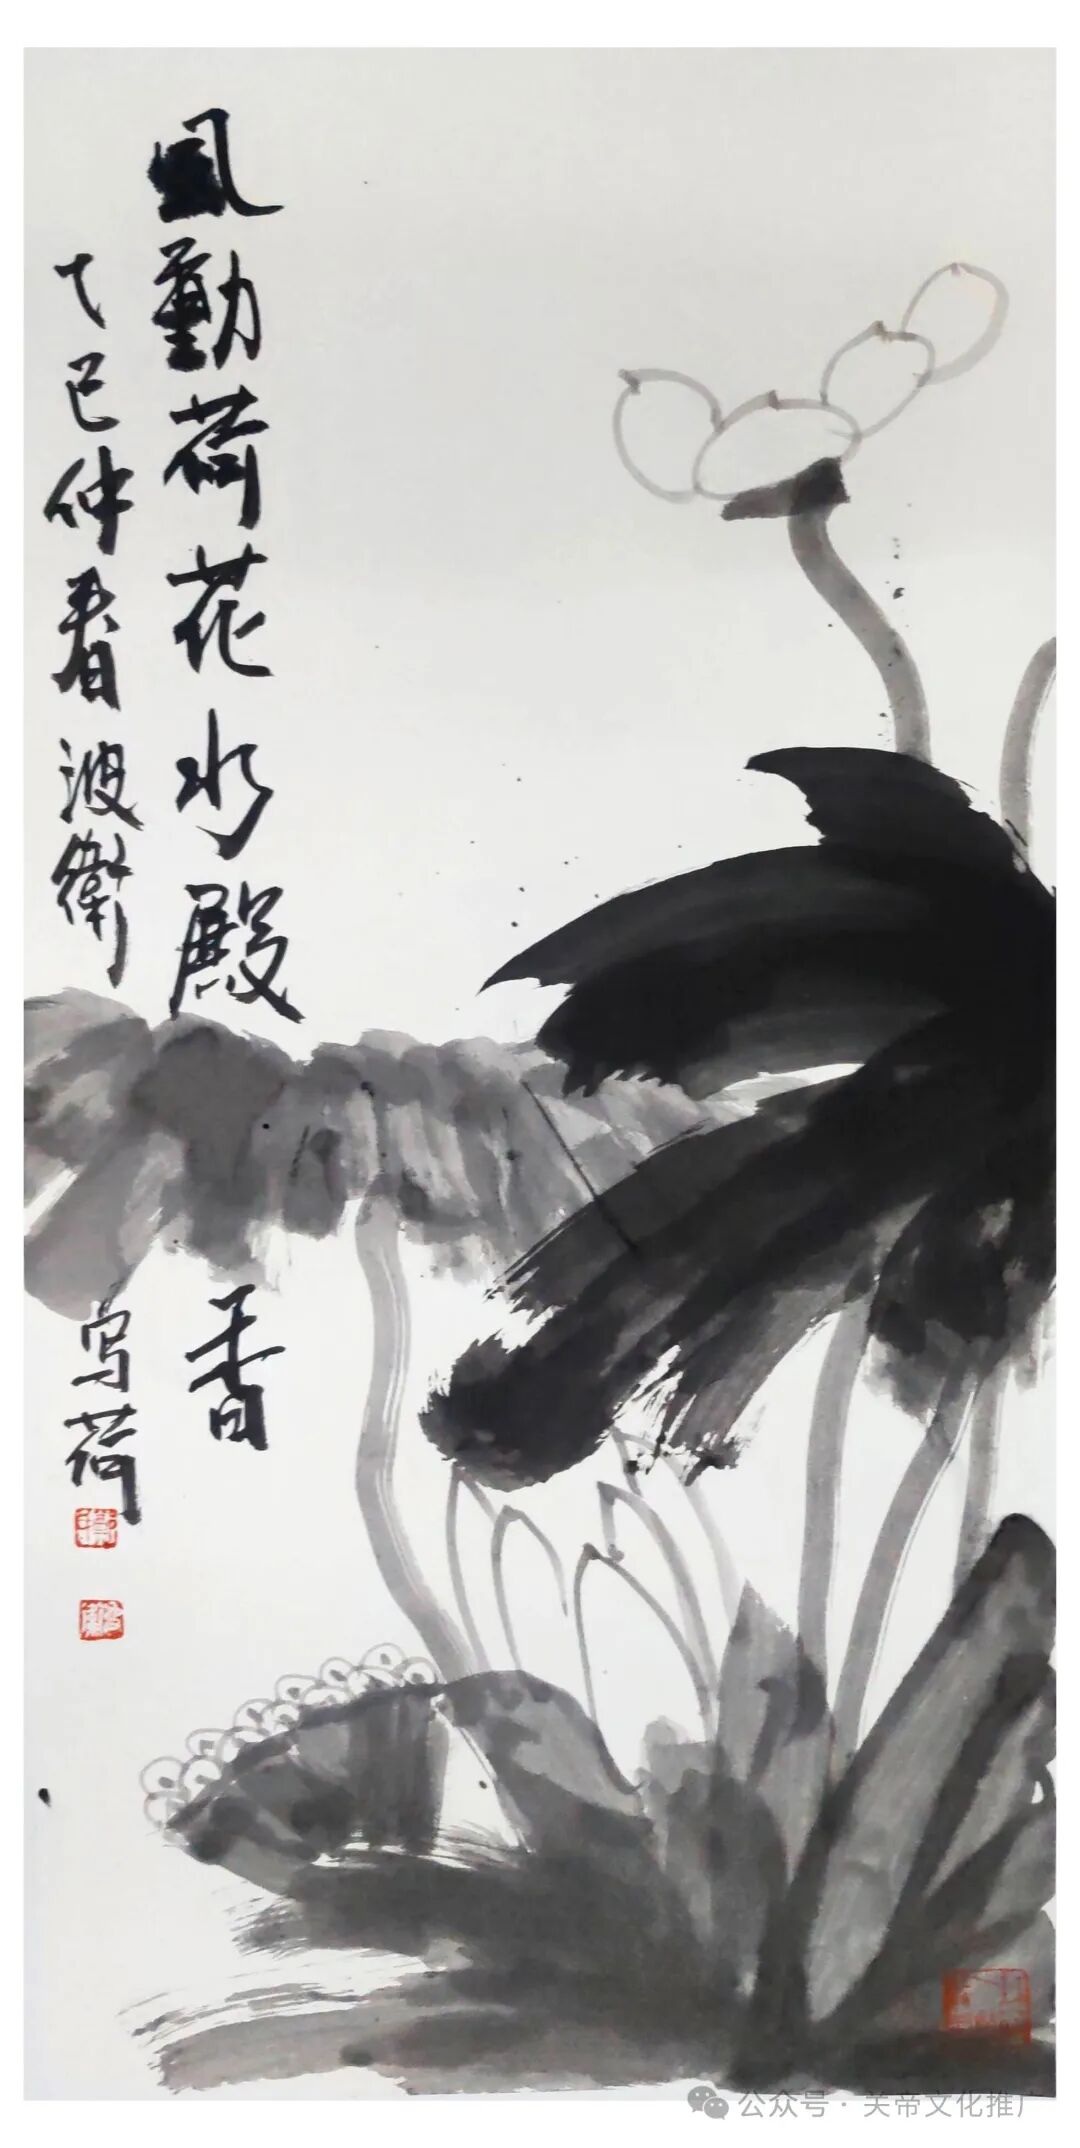 風動荷花水殿香
乙巳仲春波衛写荷
公众号·关帝文化推广